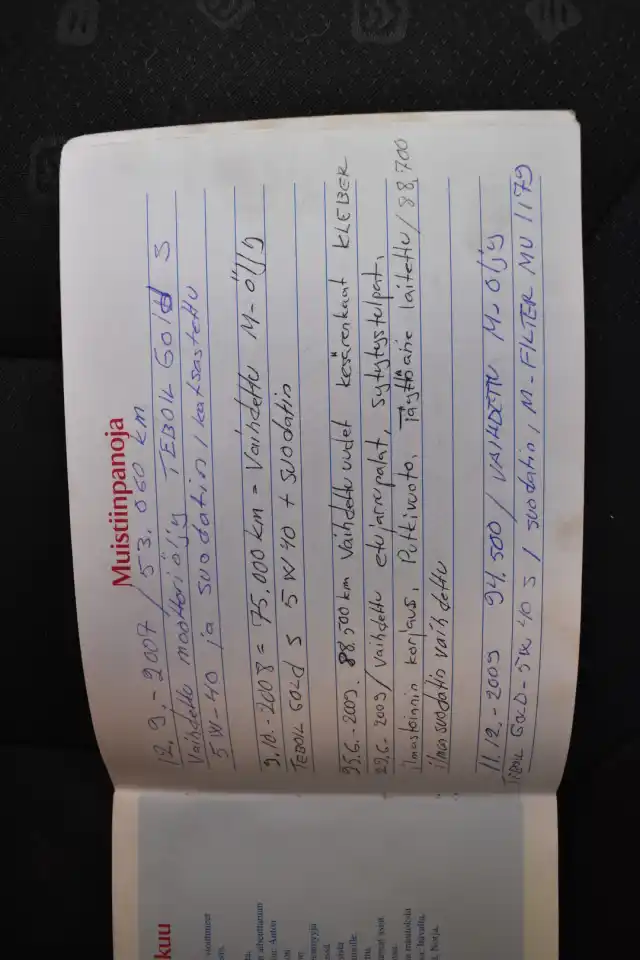 Muistiinpanoja
12. 9.-2007 / 53.060 km
Vaihdettu moottoriöljy TEBOIL GOLD S
5W-40 ja suodatin, katsastettu
9.10.-2008 = 75.000 km = Vaihdettu M-ÖLJY
TEBOIL GOLD S 5W40 + suodatin
25.6.-2009. 88.500 km Vaihdettu uudet kesärenkaat KLEBER
29.6-2009/ vaihdettu etujarrupalat, sytytystulpat,
ilmastoinnin korjaus, Putkivuoto, Täyttöaine laitettu / 88,700
ilmasuodatin vaihdettu
11.12.-2009 94.500 / VAIHDETTU M-ÖLJY
TEBOIL GOLD-5W 40 S / suodatin, M-FILTER MU 1179
kuu